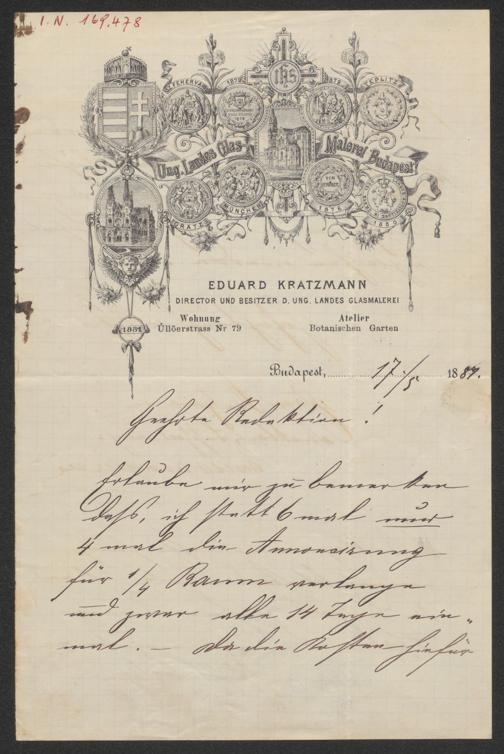 I. N. 169.478
FEHERVAR
TEPLITZ
IHS
Ung. Landes Glas Malerei Budapest
GRATZ
MÜNCHEN
1881
EDUARD KRATZMANN
DIRECTOR UND BESITZER D. UNG. LANDES GLASMALEREI
Wohnung Atelier
Üllöerstrass Nr 79 Botanischen Garten
Budapest, 17./5. 1887.
Geehrte Redaktion!
Erlaube mir zu bemerken
daß, ich statt 6 mal nur
4 mal die Annoncirung
für 1/4 Raum verlange
und zwar alle 14 Tage ein„
mal. — Da die Kosten hiefür